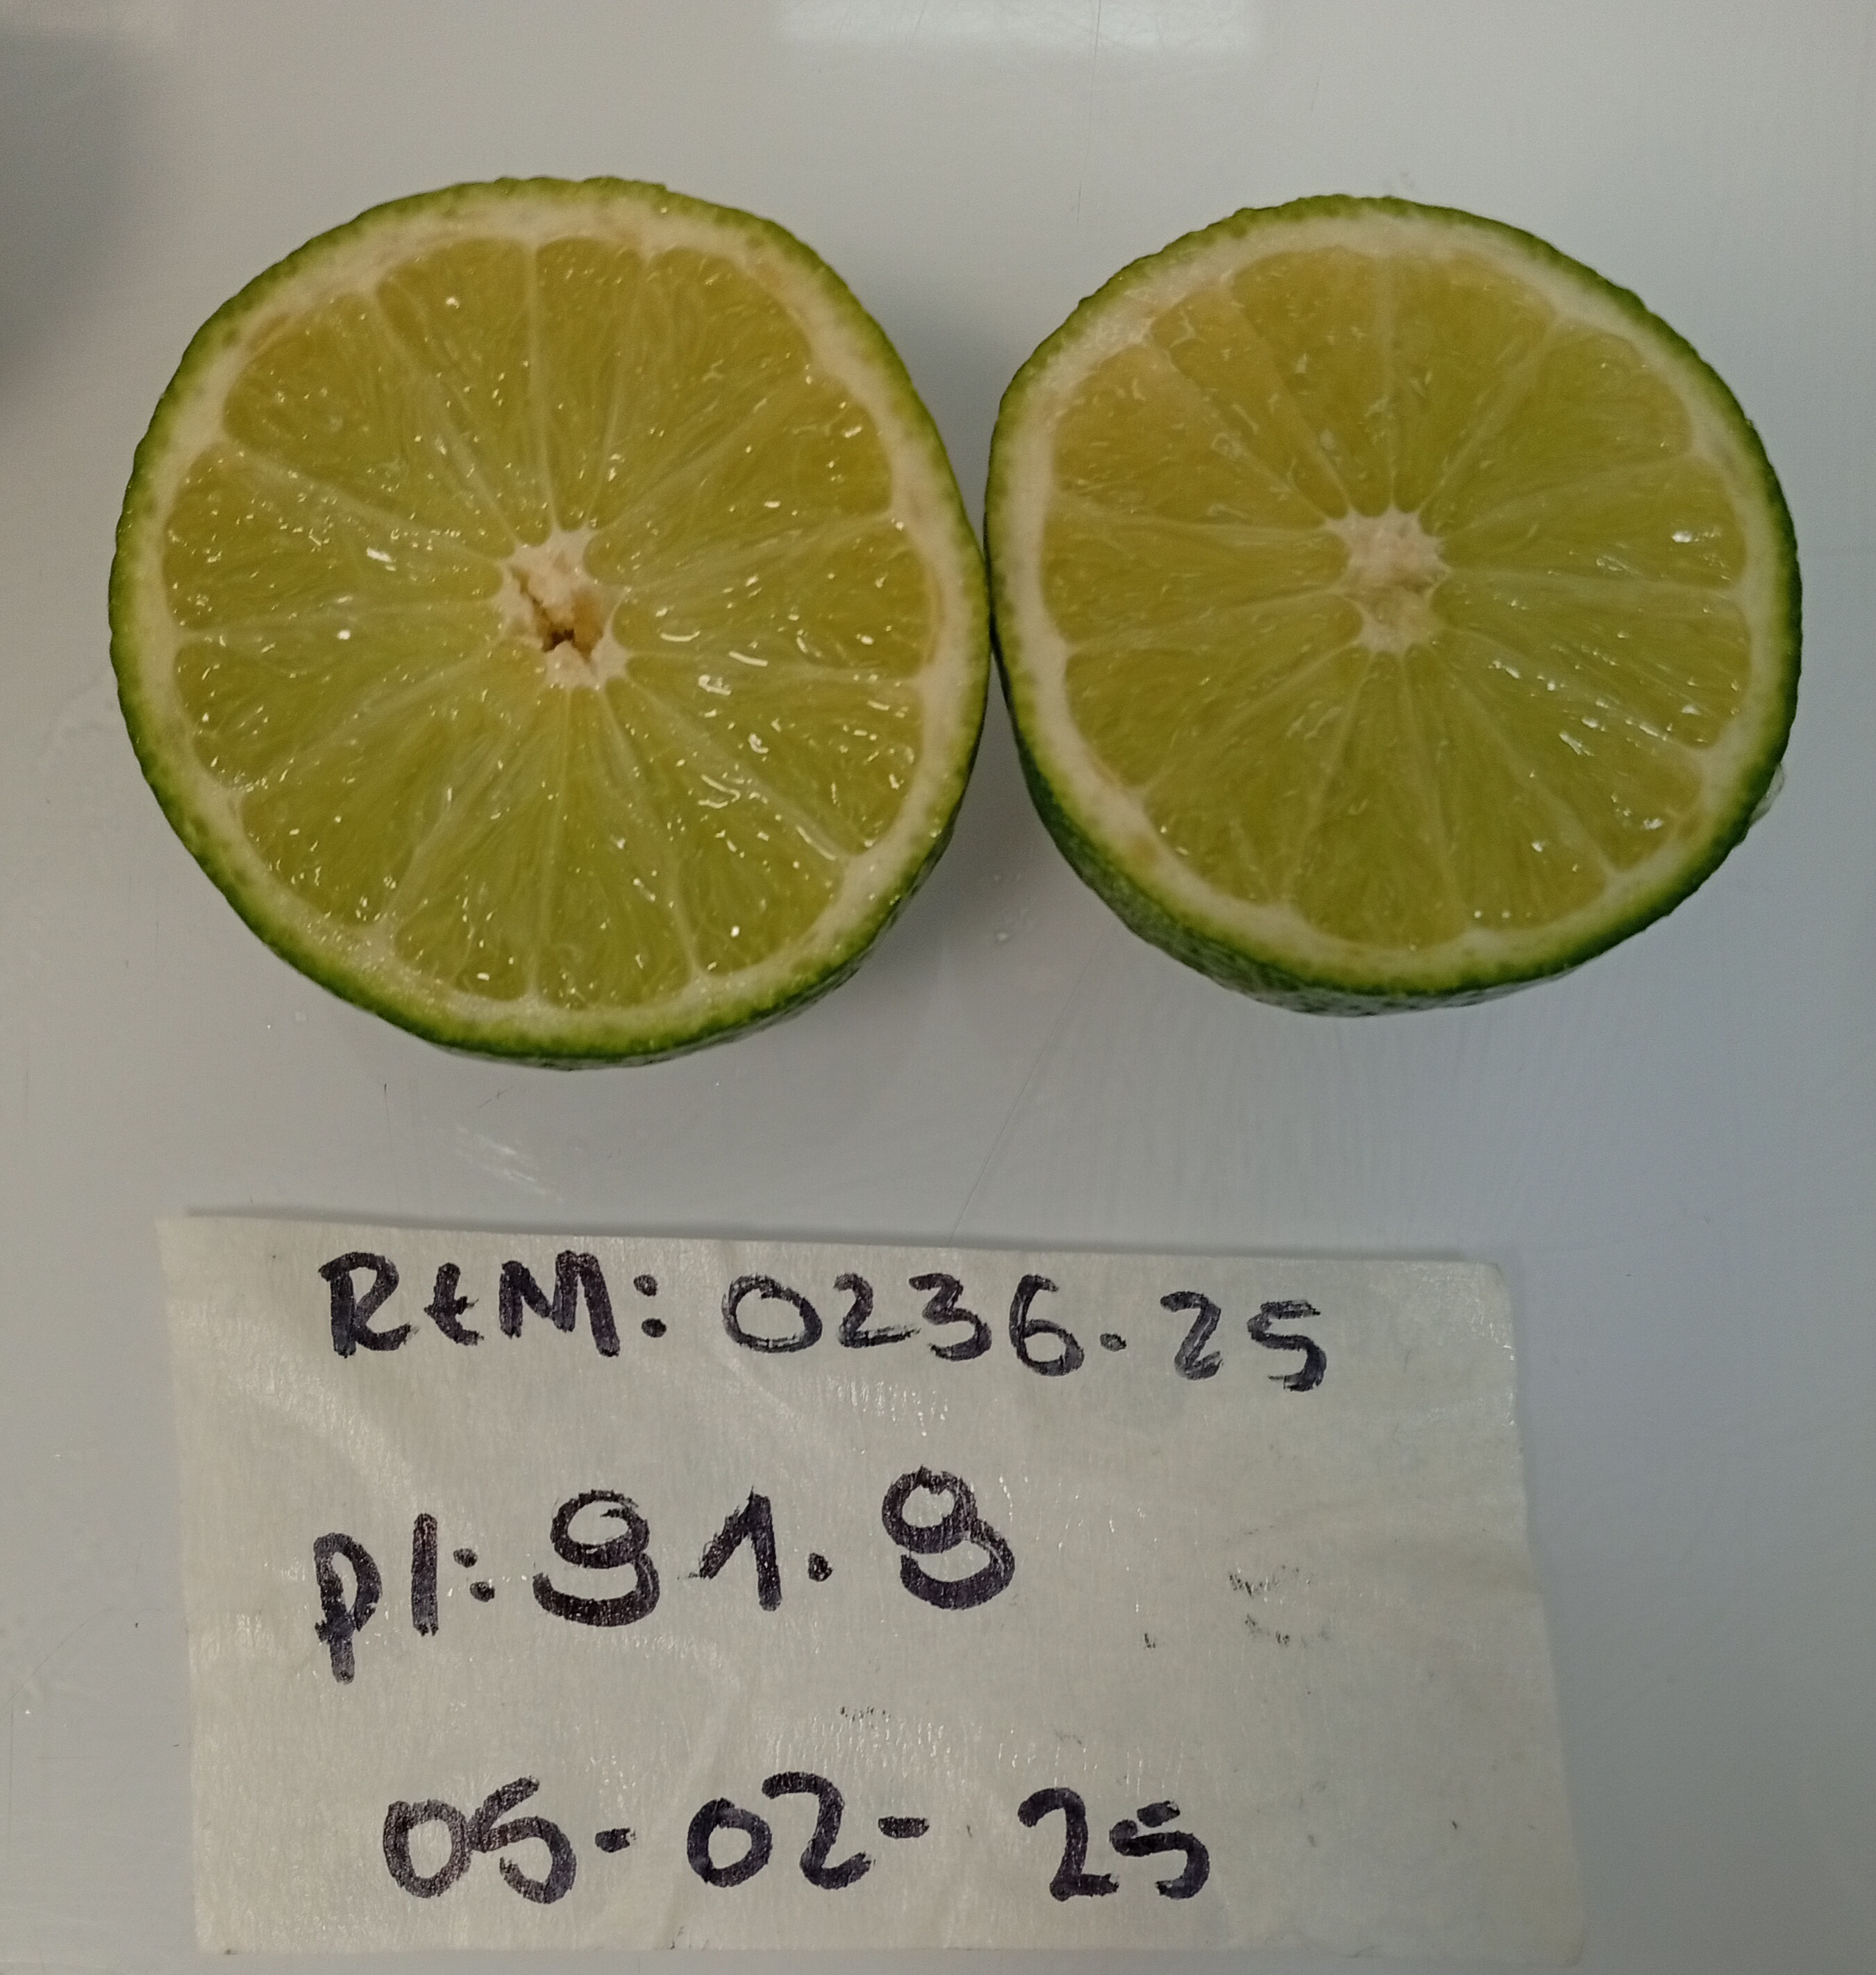 RtM: 0236.25
pl: 91.9
05-02-25